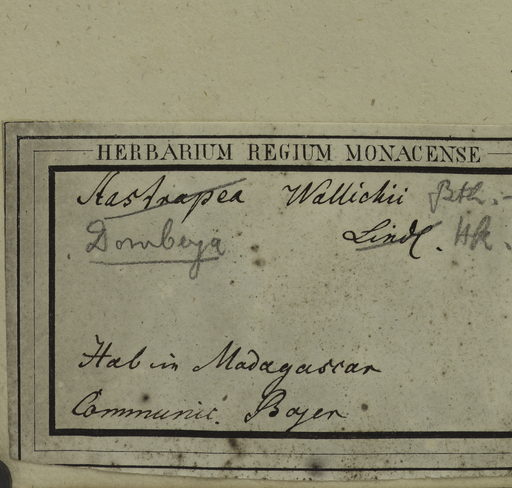 HERBARIUM REGIUM MONACENSE
Hastrapea Wallichii Bth.
Dombeya Lindl. Hk.
Hab in Madagascar
Communic. Bojer